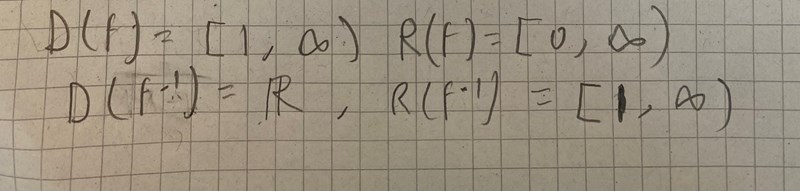 D(f) = [1, ∞) R(f) = [0, ∞)
D(f⁻¹) = ℝ, R(f⁻¹) = [1, ∞)